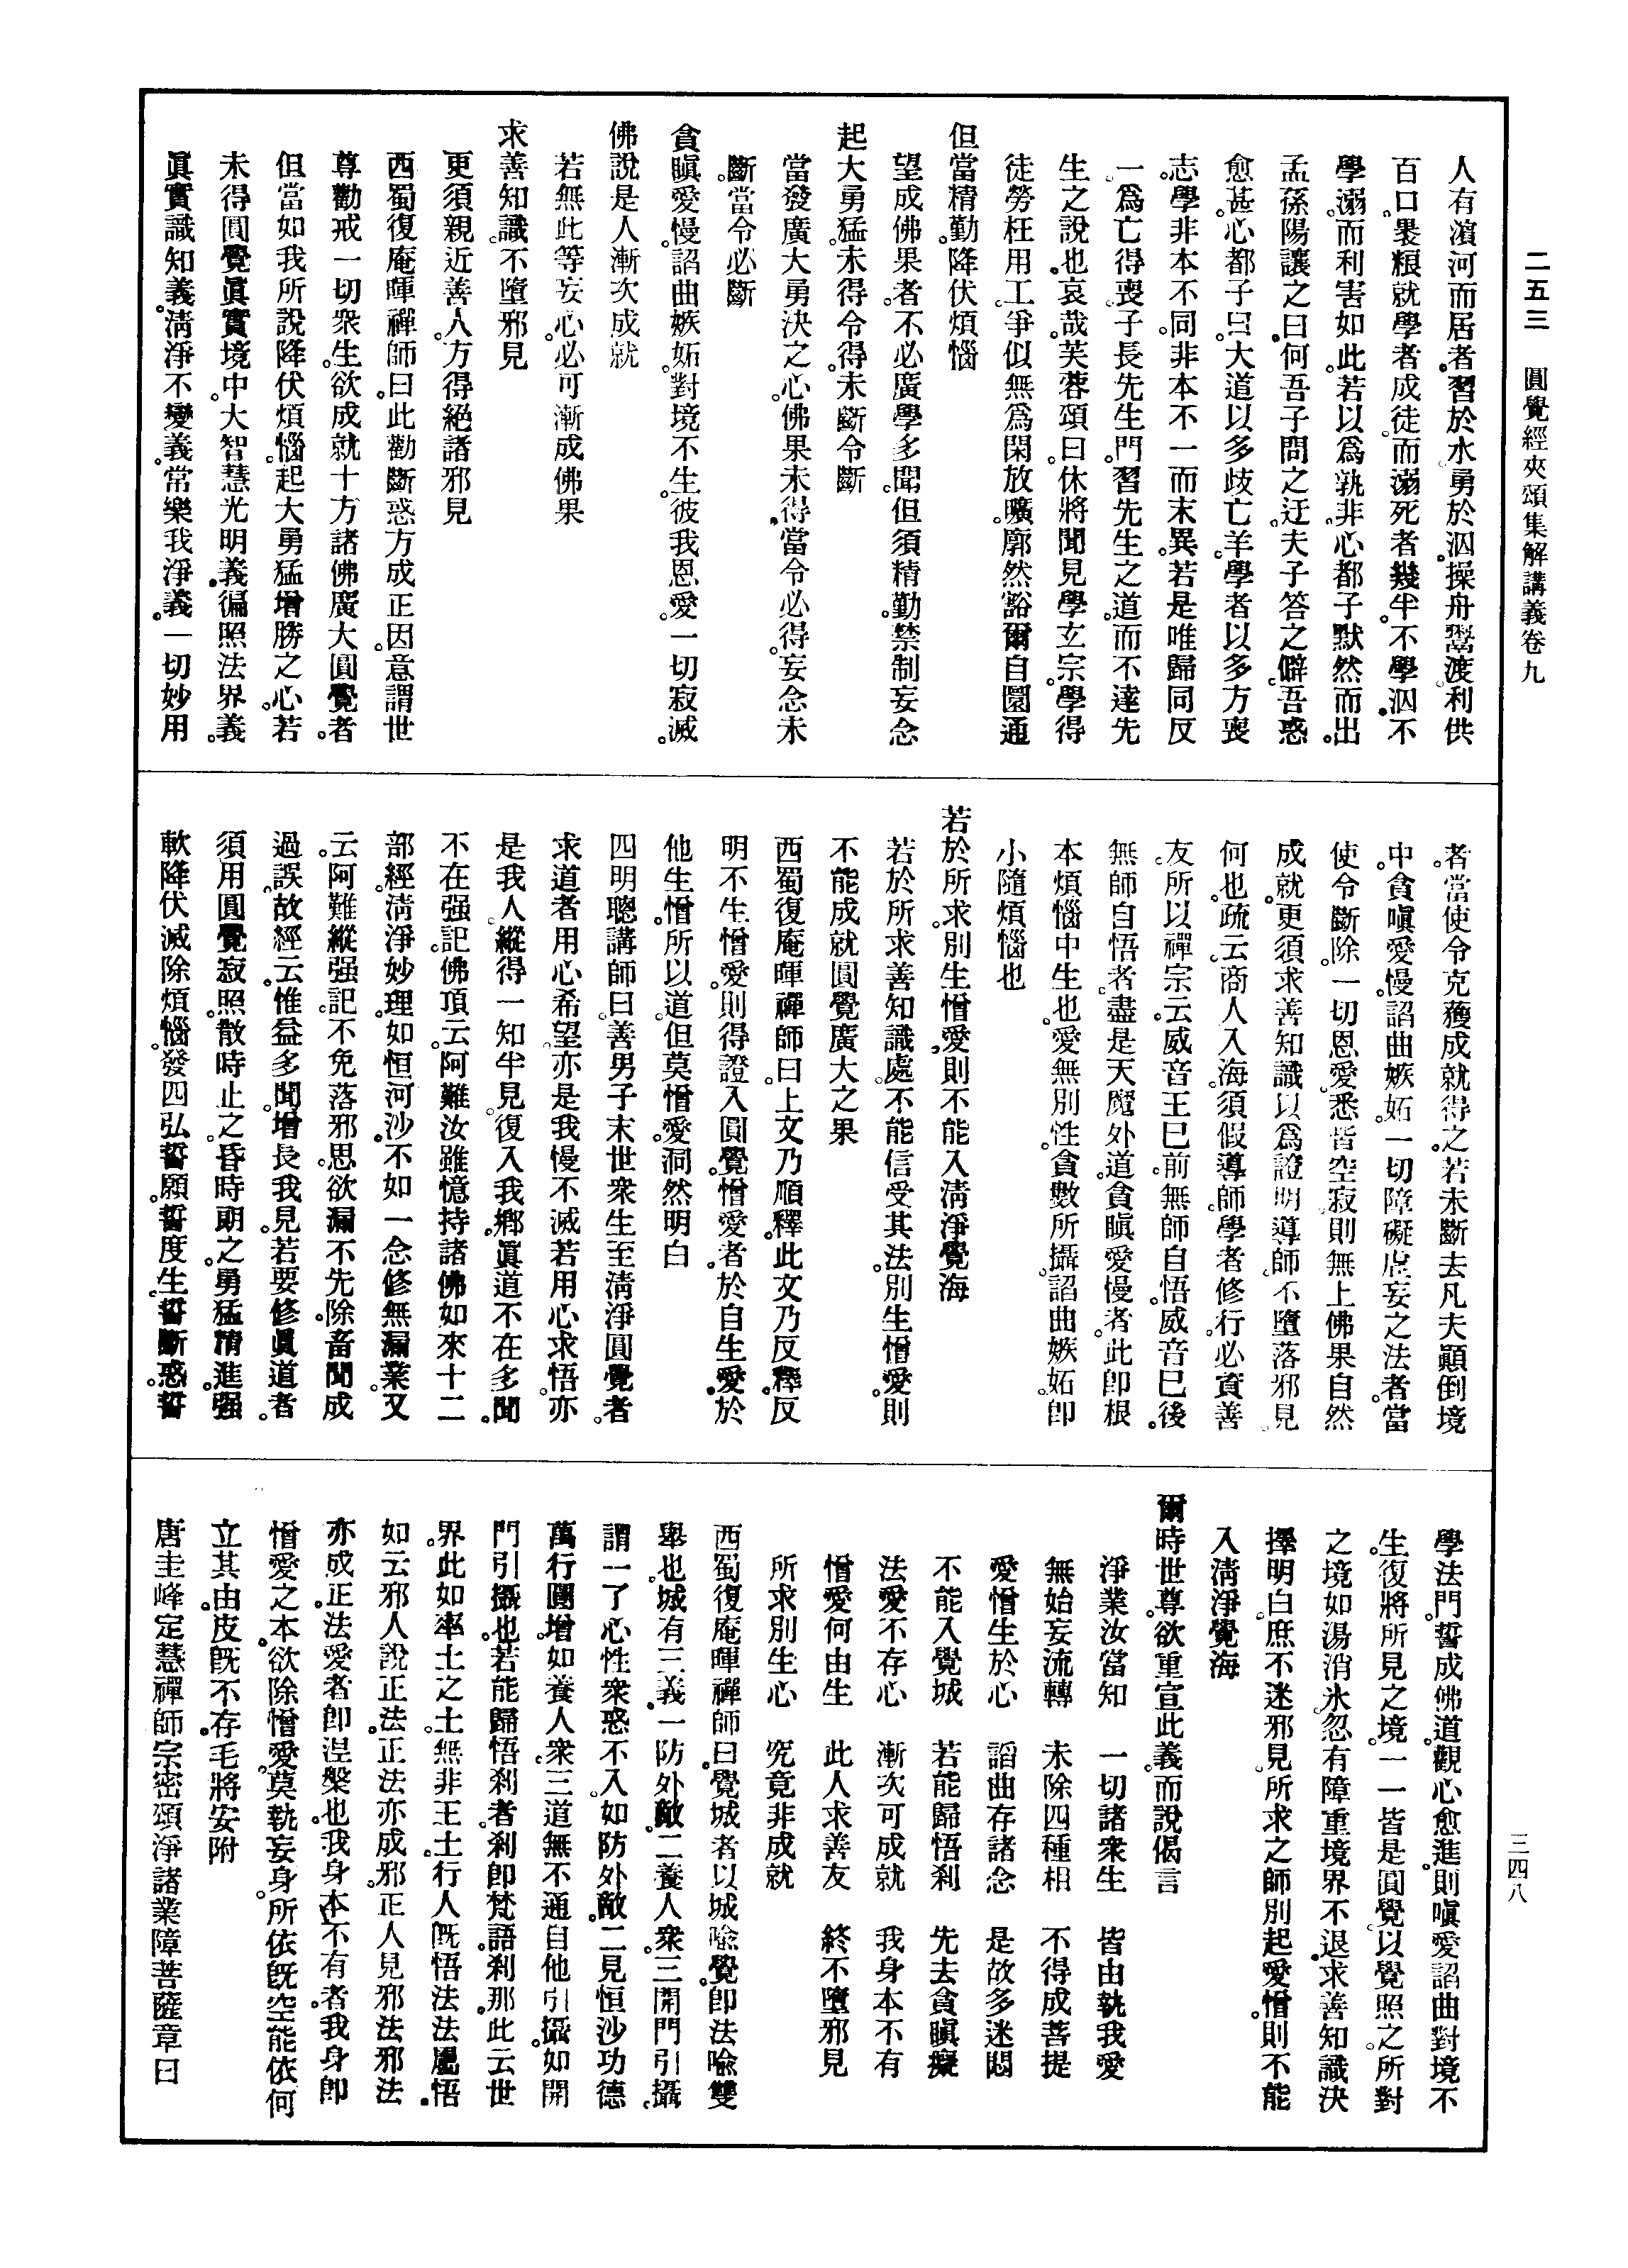 二五三　圓覺經夾頌集解講義卷九
人有濱河而居者。習於水勇於泅。操舟鬻渡。利供
百口。褁粮就學者成徒。而溺死者幾半。不學泅。不
學溺。而利害如此。若以爲孰非。心都子默然而出。
孟孫陽讓之曰。何吾子問之迂。夫子答之僻。吾惑
愈甚。心都子曰。大道以多歧亡羊。學者以多方喪
志。學非本不同。非本不一而末異。若是唯歸同反
一。爲亡得喪。子長先生門。習先生之道。而不達先
生之說也。哀哉。芙蓉頌曰。休將聞見學立宗。學得
徒勞枉用工。爭似無爲閑放曠。廓然豁爾自圜通
但當精勤。降伏煩惱
望成佛果者。不必廣學多聞。但須精勤。禁制妄念
起大勇猛。未得令得。未斷令斷
當發廣大勇決之心。佛果未得。當令必得。妄念未
斷。當令必斷
貪瞋愛慢。諂曲嫉妬。對境不生。彼我恩愛。一切寂滅。
佛說是人漸次成就
若無此等妄心。必可漸成佛果
求善知識。不墮邪見
更須親近善人。方得絕諸邪見
西蜀復庵暉禪師曰。此勸斷惑方成正因。意謂世
尊勸戒一切衆生。欲成就十方諸佛廣大圓覺者。
但當如我所說降伏煩惱。起大勇猛增勝之心。若
未得圓覺眞實境中。大智慧光明義。徧照法界義。
眞實識知義。淸淨不變義。常樂我淨義。一切妙用
者。當使令克獲成就得之。若未斷去凡夫顚倒境
中。貪嗔愛慢。諂曲嫉妬。一切障礙虛妄之法者。當
使令斷除。一切恩愛。悉皆空寂。則無上佛果自然
成就。更須求善知識以爲證明導師。不墮落邪見
何也。疏云。商人入海。須假導師。學者修行。必資善
友。所以禪宗云。威音王已前。無師自悟。威音已後。
無師自悟者。盡是天魔外道。貪瞋愛慢者。此卽根
本煩惱中生也。愛無別性。貪數所攝。諂曲嫉妬。卽
小隨煩惱也
若於所求。別生憎愛。則不能入淸淨覺海
若於所求善知識處。不能信受其法。別生憎愛。則
不能成就圓覺廣大之果
西蜀復庵暉禪師曰。上文乃順釋。此文乃反釋。反
明不生憎愛。則得證入圓覺。憎愛者。於自生愛。於
他生憎。所以道。但莫憎愛。洞然明白
四明聰講師曰。善男子末世衆生至淸淨圓覺者。
求道者用心希望。亦是我慢不滅。若用心求悟。亦
是我人。縱得一知半見。復入我鄉。眞道不在多聞。
不在强記。佛頂云。阿難汝雖憶持諸佛如來十二
部經。淸淨妙理。如恒河沙。不如一念修無漏業。又
云。阿難縱强記。不免落邪思。欲漏不先除。畜聞成
過誤。故經云。惟益多聞。增長我見。若要修眞道者。
須用圓覺寂照。散時止之。昏時朗之。勇猛精進。强
軟降伏。滅除煩惱。發四弘誓願。誓度生。誓斷惑。誓
學法門。誓成佛道。觀心愈進。則嗔愛諂曲對境不
生。復將所見之境。一一皆是圓覺。以覺照之。所對
之境。如湯消氷。忽有障重境界不退。求善知識決
擇明白。庶不迷邪見。所求之師別起愛憎。則不能
入淸淨覺海
爾時世尊。欲重宣此義。而說偈言
淨業汝當知　一切諸衆生　皆由執我愛
無始妄流轉　未除四種相　不得成菩提
愛憎生於心　諂曲存諸念　是故多迷悶
不能入覺城　若能歸悟刹　先去貪瞋癡
法愛不存心　漸次可成就　我身本不有
憎愛何由生　此人求善友　終不墮邪見
所求別生心　究竟非成就
西蜀復庵暉禪師曰。覺城者。以城喩覺。卽法喩雙
舉也。城有三義。一防外敵。二養人衆。三開門引攝。
謂一了心性。衆惑不入。如防外敵。二見恒沙功德
萬行圓增。如養人衆。三道無不通。自他引攝。如開
門引攝也。若能歸悟刹者。刹卽梵語刹那。此云世
界。此如率土之土。無非王土。行人旣悟法。法麤悟。
如云。邪人說正法。正法亦成邪。正人見邪法。邪法
亦成正。法愛者。卽涅槃也。我身本不有者。我身卽
憎愛之本。欲除憎愛。莫執妄身。所依旣空。能依何
立。其由皮旣不存。毛將安附
唐圭峰定慧禪師宗密頌淨諸業障菩薩章曰
三四八